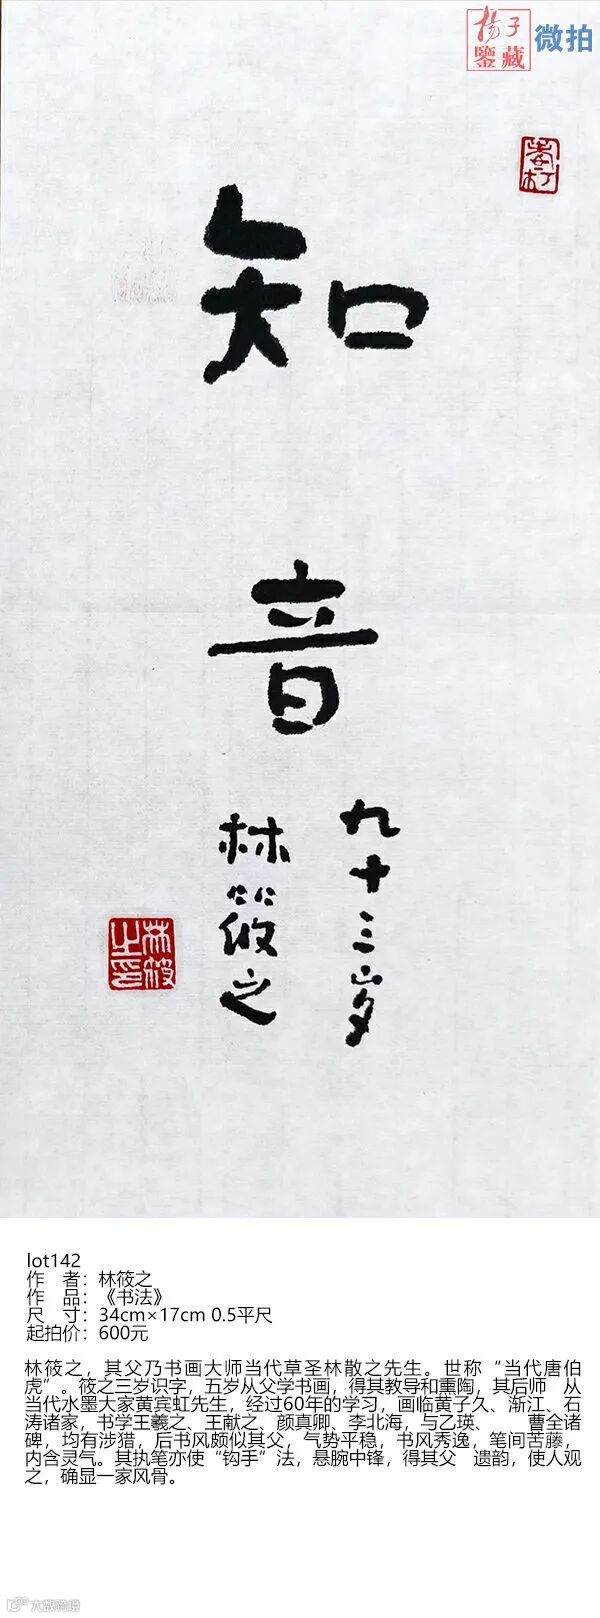 杨子
鑒藏
微拍
知音
九十三岁
林筱之
林筱之印
lot142
作　者：林筱之
作　品：《书法》
尺　寸：34cm×17cm 0.5平尺
起拍价：600元
林筱之，其父乃书画大师当代草圣林散之先生。世称“当代唐伯
虎”。筱之三岁识字，五岁从父学书画，得其教导和熏陶，其后师　从
当代水墨大家黄宾虹先生，经过60年的学习，画临黄子久、渐江、石
涛诸家，书学王羲之、王献之、颜真卿、李北海，与乙瑛、　　曹全诸
碑，均有涉猎，后书风颇似其父，气势平稳，书风秀逸，笔间苦藤，
内含灵气。其执笔亦使“钩手”法，悬腕中锋，得其父　遗韵，使人观
之，确显一家风骨。
大数跨境